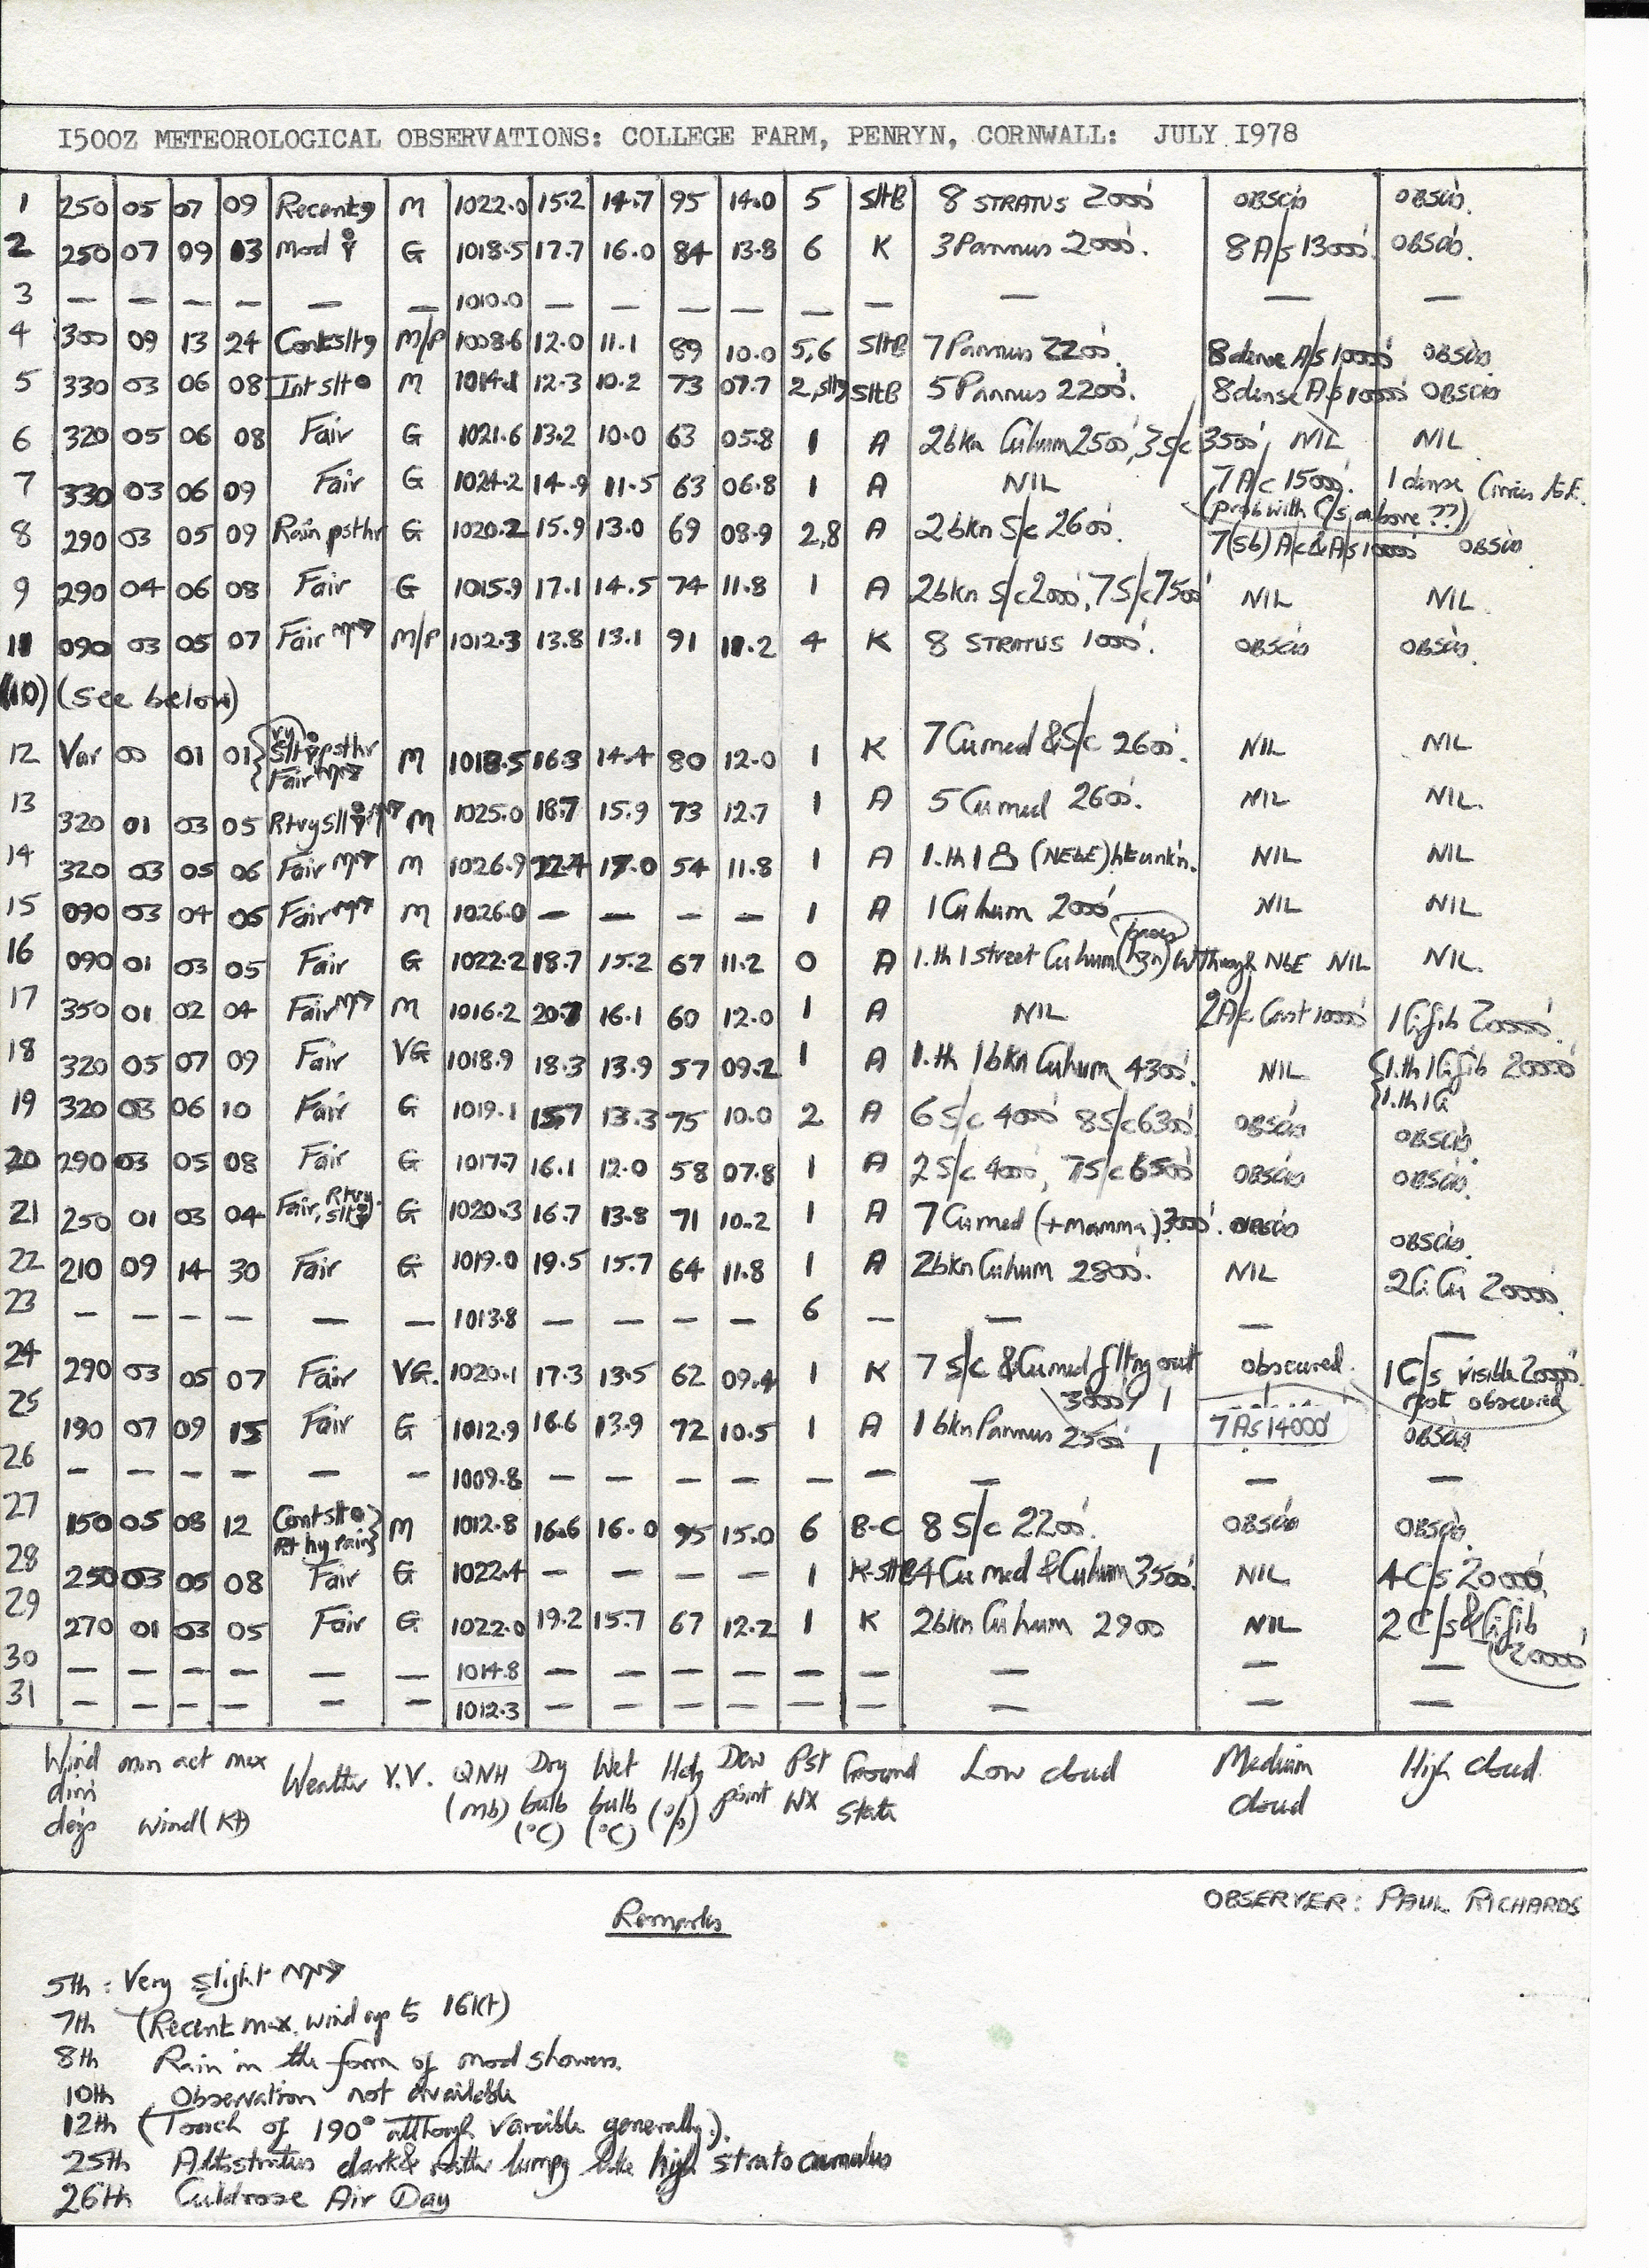 1500Z METEOROLOGICAL OBSERVATIONS: COLLEGE FARM, PENRYN, CORNWALL: JULY 1978
1 250 05 07 09 Recent 9 M 1022.0 15.2 14.7 95 14.0 5 SltB 8 STRATUS 2000' OBSCD OBSCD.
2 250 07 09 13 Mod G 1018.5 17.7 16.0 84 13.8 6 K 3 Pannus 2000'. 8 A/s 13000' OBSCD.
3 — — — — — — 1010.0 — — — — — — — — —
4 300 09 13 24 Contslt9 M/P 1008.6 12.0 11.1 89 10.0 5,6 SltB 7 Pannus 2200'. 8 dense A/s 10000' OBSCD
5 330 03 06 08 Int slt M 1014.1 12.3 10.2 73 07.7 2, SltB 5 Pannus 2200'. 8 dense A/s 10000' OBSCD
6 320 05 06 08 Fair G 1021.6 13.2 10.0 63 05.8 1 A 2bkn Cuhum 2500', 3S/c 3500', NIL NIL
7 330 03 06 09 Fair G 1024.2 14.9 11.5 63 06.8 1 A NIL 7 A/c 15000'. 1 dense Cirrus
(prob with C/s above ??)
8 290 03 05 09 Rain psthr G 1020.2 15.9 13.0 69 08.9 2,8 A 2bkn S/c 2600'. 7(sb) A/c & A/s 10000' OBSCD
9 290 04 06 08 Fair G 1015.9 17.1 14.5 74 11.8 1 A 2bkn S/c 2000', 7 S/c 7500' NIL NIL
11 090 03 05 07 Fair M/P 1012.3 13.8 13.1 91 11.2 4 K 8 STRATUS 1000'. OBSCD OBSCD.
(10) (see below)
12 Var 00 01 01 { vy slt psthr Fair M 1018.5 16.3 14.4 80 12.0 1 K 7 Cumed & S/c 2600'. NIL NIL
13 320 01 03 05 Rtvyslt M 1025.0 18.7 15.9 73 12.7 1 A 5 Cumed 2600'. NIL NIL.
14 320 03 05 06 Fair M 1026.9 22.4 17.0 54 11.8 1 A 1.th 1 (NEbE) ht unkn. NIL NIL
15 090 03 04 05 Fair M 1026.0 — — — — 1 A 1 Cu hum 2000' NIL NIL
16 090 01 03 05 Fair G 1022.2 18.7 15.2 67 11.2 0 A 1.th 1 street Cuhum (hzn) W through NbE NIL NIL.
17 350 01 02 04 Fair M 1016.2 20.7 16.1 60 12.0 1 A NIL 2A/c Cast 10000' 1 Cifib 20000'.
18 320 05 07 09 Fair VG 1018.9 18.3 13.9 57 09.2 1 A 1.th 1bkn Cuhum 4300'. NIL {1.th 1Cifib 20000'
{1.th 1Ci
19 320 03 06 10 Fair G 1019.1 15.7 13.3 75 10.0 2 A 6 S/c 4000' 8S/c 6300' OBSCD OBSCD.
20 290 03 05 08 Fair G 1017.7 16.1 12.0 58 07.8 1 A 2 S/c 4000', 7S/c 6500' OBSCD OBSCD.
21 250 01 03 04 Fair, Rtvy slt G 1020.3 16.7 13.8 71 10.2 1 A 7 Cumed (+mamma) 3000'. OBSCD OBSCD.
22 210 09 14 30 Fair G 1019.0 19.5 15.7 64 11.8 1 A 2bkn Cuhum 2800'. NIL 2Ci Cu 20000'.
23 — — — — — — 1013.8 — — — — 6 — — — —
24 290 03 05 07 Fair VG. 1020.1 17.3 13.5 62 09.4 1 K 7 S/c & Cumed flttng out 3000' obscured. 1C/s visible 20000'. rest obscured
25 190 07 09 15 Fair G 1012.9 16.6 13.9 72 10.5 1 A 1 bkn Pannus 2500' 7 As 14000' OBSCD
26 — — — — — — 1009.8 — — — — — — — — —
27 150 05 08 12 Contslt Rt hy rain} M 1012.8 16.6 16.0 95 15.0 6 B-C 8 S/c 2200'. OBSCD OBSCD.
28 250 03 05 08 Fair G 1022.4 — — — — 1 K-SltB 4 Cu med & Cuhum 3500'. NIL 4C/s 20000'
29 270 01 03 05 Fair G 1022.0 19.2 15.7 67 12.2 1 K 2bkn Cuhum 2900 NIL 2 C/s & Cifib 20000'
30 — — — — — — 1014.8 — — — — — — — — —
31 — — — — — — 1012.3 — — — — — — — — —
Wind dirn degs min act max wind (Kt) Weather V.V. QNH (mb) Dry bulb (°C) Wet bulb (°C) Hdy (%) Dew point Pst WX Ground State Low cloud Medium cloud High cloud.
OBSERVER: PAUL RICHARDS
Remarks
5th : Very slight
7th (Recent max. wind up to 16kt)
8th Rain in the form of mod showers.
10th Observation not available
12th (Touch of 190° although variable generally).
25th Altostratus dark & rather lumpy like high stratocumulus
26th Culdrose Air Day